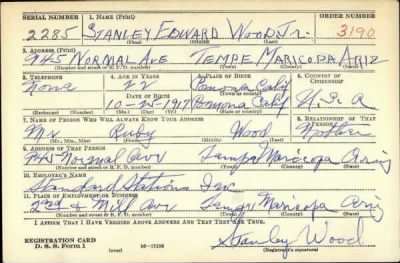 SERIAL NUMBER 1. NAME (Print) ORDER NUMBER
2285 STANLEY EDWARD WOOD Jr. 3190
(First) (Middle) (Last)
2. ADDRESS (Print)
945 NORMAL AVE TEMPE MARICOPA ARIZ
(Number and street or R. F. D. number) (Town) (County) (State)
3. TELEPHONE 4. AGE IN YEARS 5. PLACE OF BIRTH 6. COUNTRY OF CITIZENSHIP
None 22 Pomona Calif
DATE OF BIRTH
10-25-1917 Pomona Calif U.S.A
(Exchange) (Number) (Mo.) (Day) (Yr.) (State or country)
7. NAME OF PERSON WHO WILL ALWAYS KNOW YOUR ADDRESS 8. RELATIONSHIP OF THAT PERSON
Mrs Ruby Wood Mother
(Mr., Mrs., Miss) (First) (Middle) (Last)
9. ADDRESS OF THAT PERSON
945 Normal Ave Tempe Maricopa Ariz
(Number and street or R. F. D. number) (Town) (County) (State)
10. EMPLOYER'S NAME
Standard Stations Inc
11. PLACE OF EMPLOYMENT OR BUSINESS
2nd & Mill Ave Tempe Maricopa Ariz
(Number and street or R. F. D. number) (Town) (County) (State)
I AFFIRM THAT I HAVE VERIFIED ABOVE ANSWERS AND THAT THEY ARE TRUE.
REGISTRATION CARD
D. S. S. Form 1 (over) Stanley Wood
(Registrant's signature)